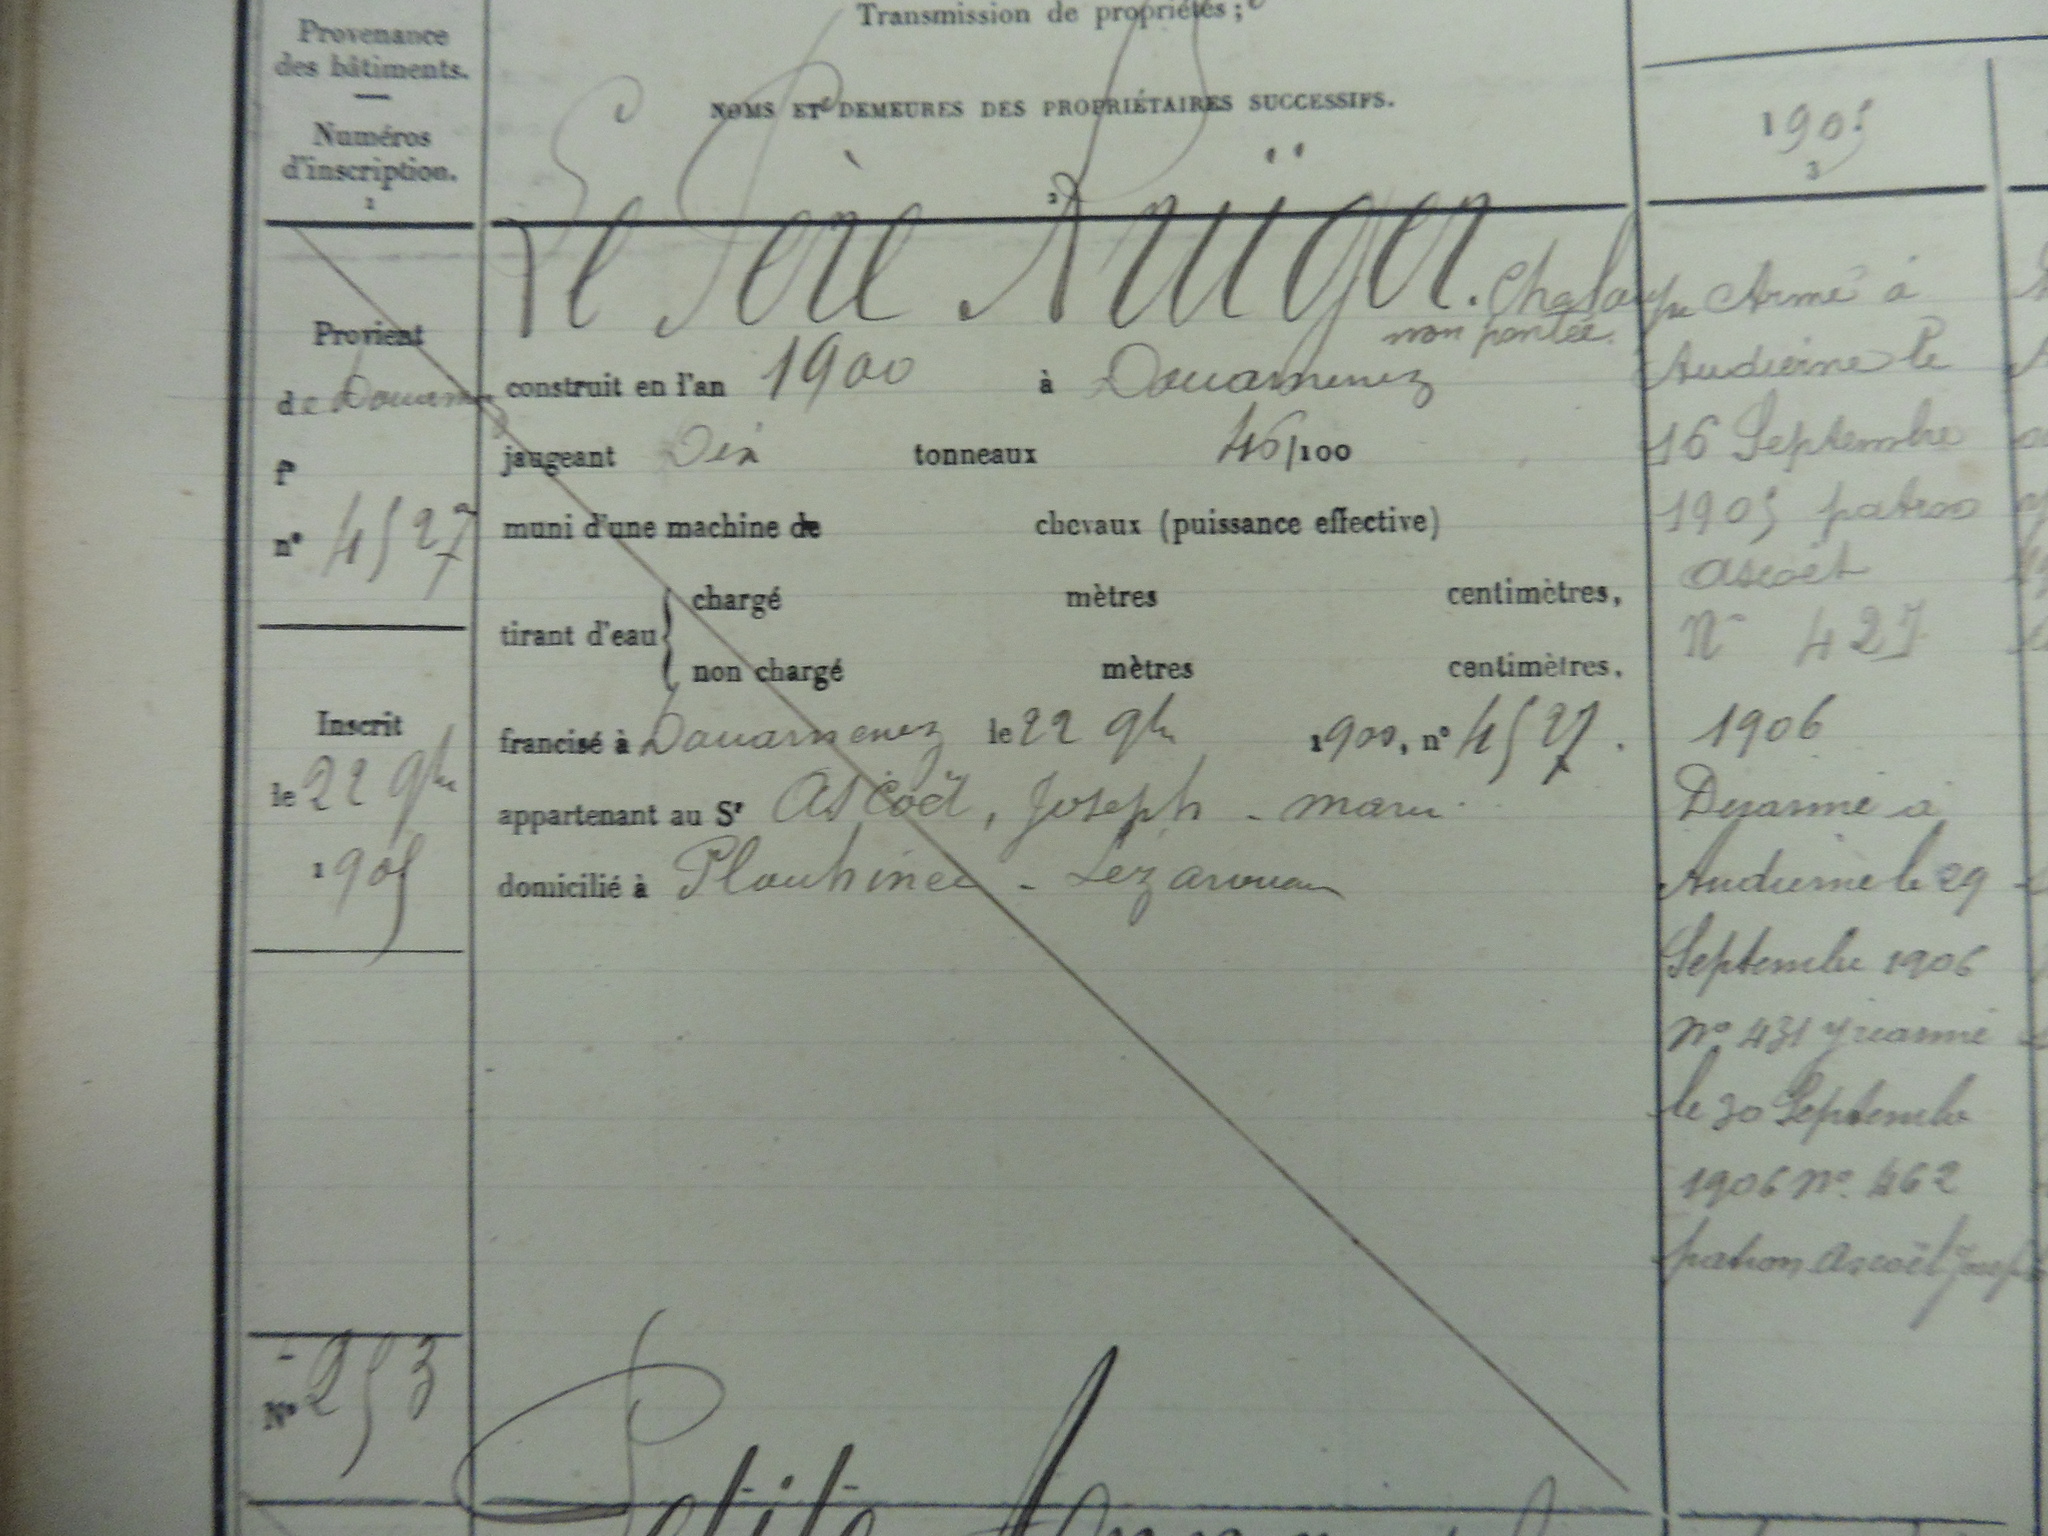 Provenance
des bâtiments.
Numéros
d'inscription.
1
Transmission de propriétés ;
NOMS ET DEMEURES DES PROPRIÉTAIRES SUCCESSIFS.
2
1905
3
Le Père Rüger. Chaloupe
non pontée.
Provient
de Douarnenez
f°
n° 4527
Inscrit
le 22 9bre
1905
construit en l'an 1900 à Douarnenez
jaugeant Dix tonneaux 46/100
muni d'une machine de chevaux (puissance effective)
tirant d'eau { chargé mètres centimètres,
non chargé mètres centimètres,
francisé à Douarnenez le 22 9bre 1900, n° 4527.
appartenant au Sr Ascoët, Joseph - marie
domicilié à Plouhinec - Lezarouan
Armé à
Audierne le
16 Septembre
1905 patron
Ascoët
N° 427
1906
Désarmé à
Audierne le 29
Septembre 1906
N° 431 y réarmé
le 30 Septembre
1906 N° 462
patron Ascoët Joseph
N° 253
Petite